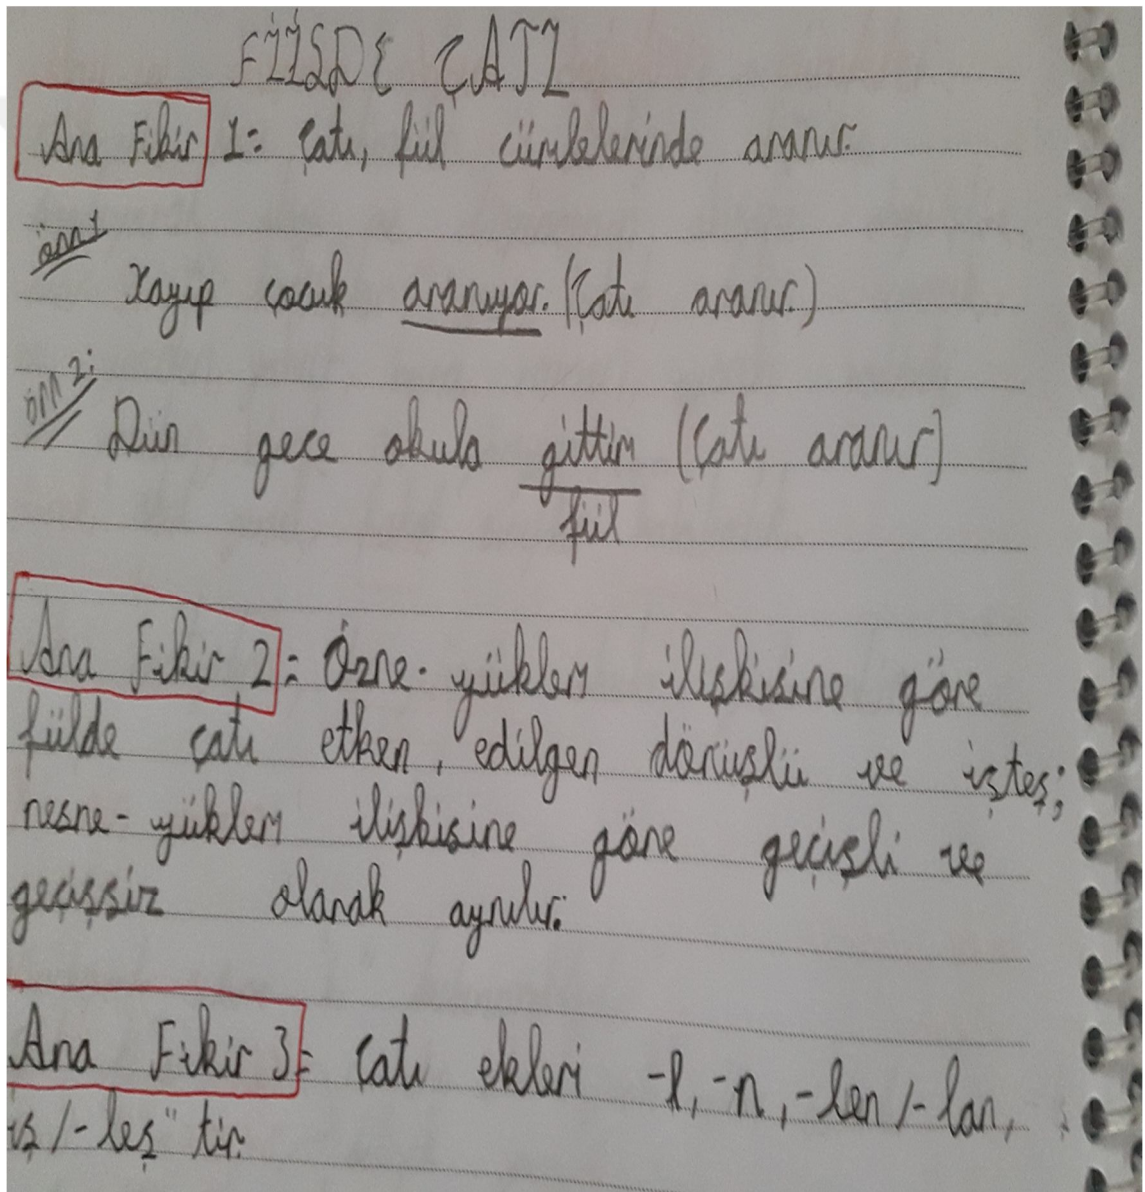 FİİLDE ÇATI
Ana Fikir 1= Çatı, fiil cümlelerinde aranır.
örn1
Kayıp çocuk aranıyor. (Çatı aranır.)
örn 2:
Dün gece okula gittim (Çatı aranır)
fiil
Ana Fikir 2= Özne-yüklem ilişkisine göre
fiilde çatı etken, edilgen dönüşlü ve işteş;
nesne-yüklem ilişkisine göre geçişli ve
geçişsiz olarak ayrılır.
Ana Fikir 3= Çatı ekleri -l, -n, -len /-lan,
ış /-leş" tir.